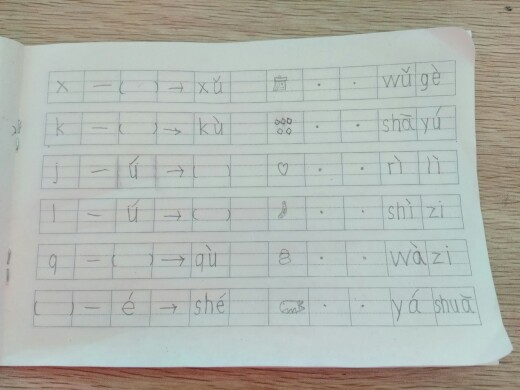 x — ( ) → xǔ wǔ gè
k — ( ) → kù shā yú
j — ǘ → ( ) rì lì
l — ǘ → ( ) shì zi
q — ( ) → qù wà zi
( ) — é → shé yá shuā